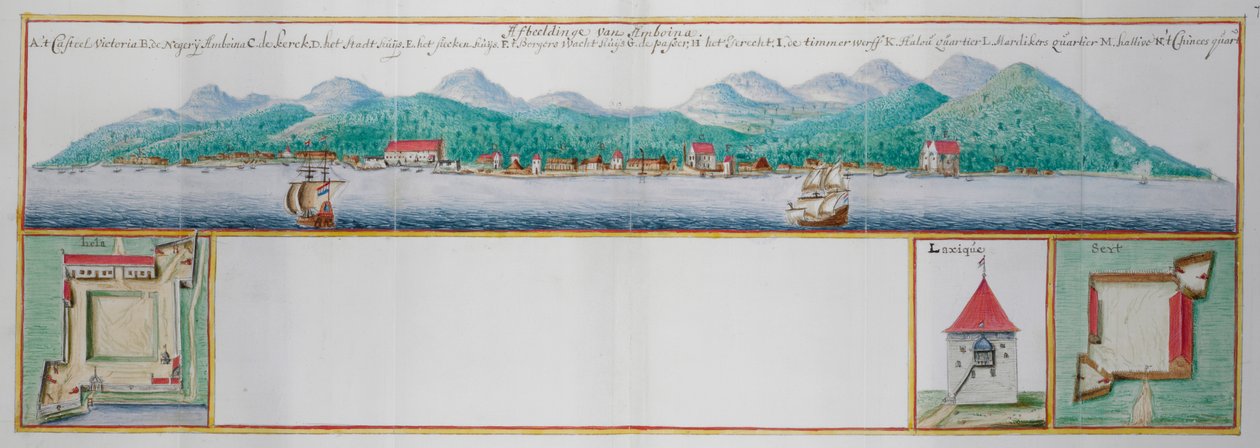 Afbeeldinge van Amboina.
A.'t Casteel Victoria B. de Negerÿ Amboina C. de kerck, D. het Stadt huÿs, E. het siecken huÿs, F. t. Borgers Wacht huÿs G. de passer, H het Gerecht. I. de timmer werff K. Halou quartier L. Mardikers quartier M. hative N't Chinees quart
hila
Laxique
Sert